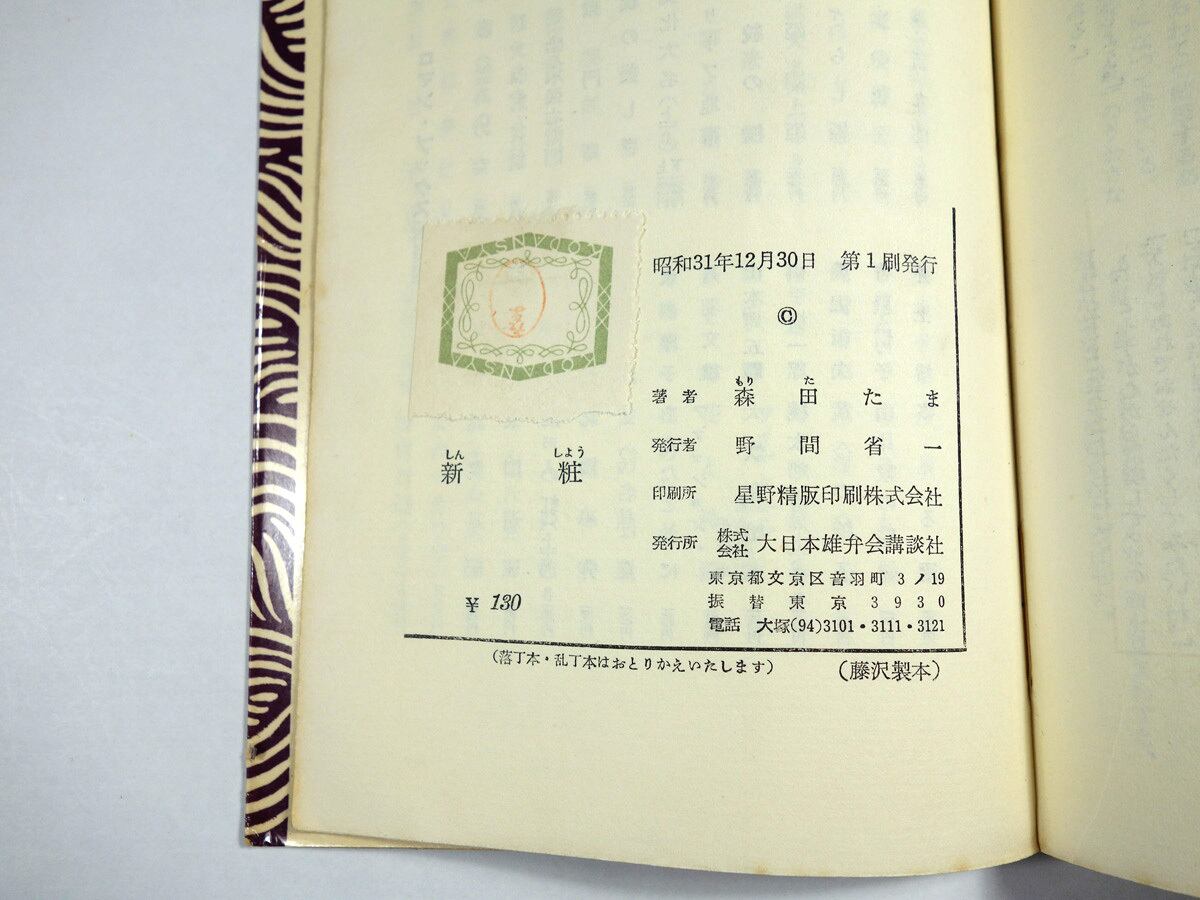 KODANSYA
KODANSYA
昭和31年12月30日 第1刷発行
©
著者 森田たま
もり た
発行者 野間省一
印刷所 星野精版印刷株式会社
発行所 株式会社 大日本雄弁会講談社
東京都文京区音羽町3ノ19
振替東京3930
電話 大塚(94)3101・3111・3121
しん しよう
新粧
¥ 130
(落丁本・乱丁本はおとりかえいたします)
(藤沢製本)